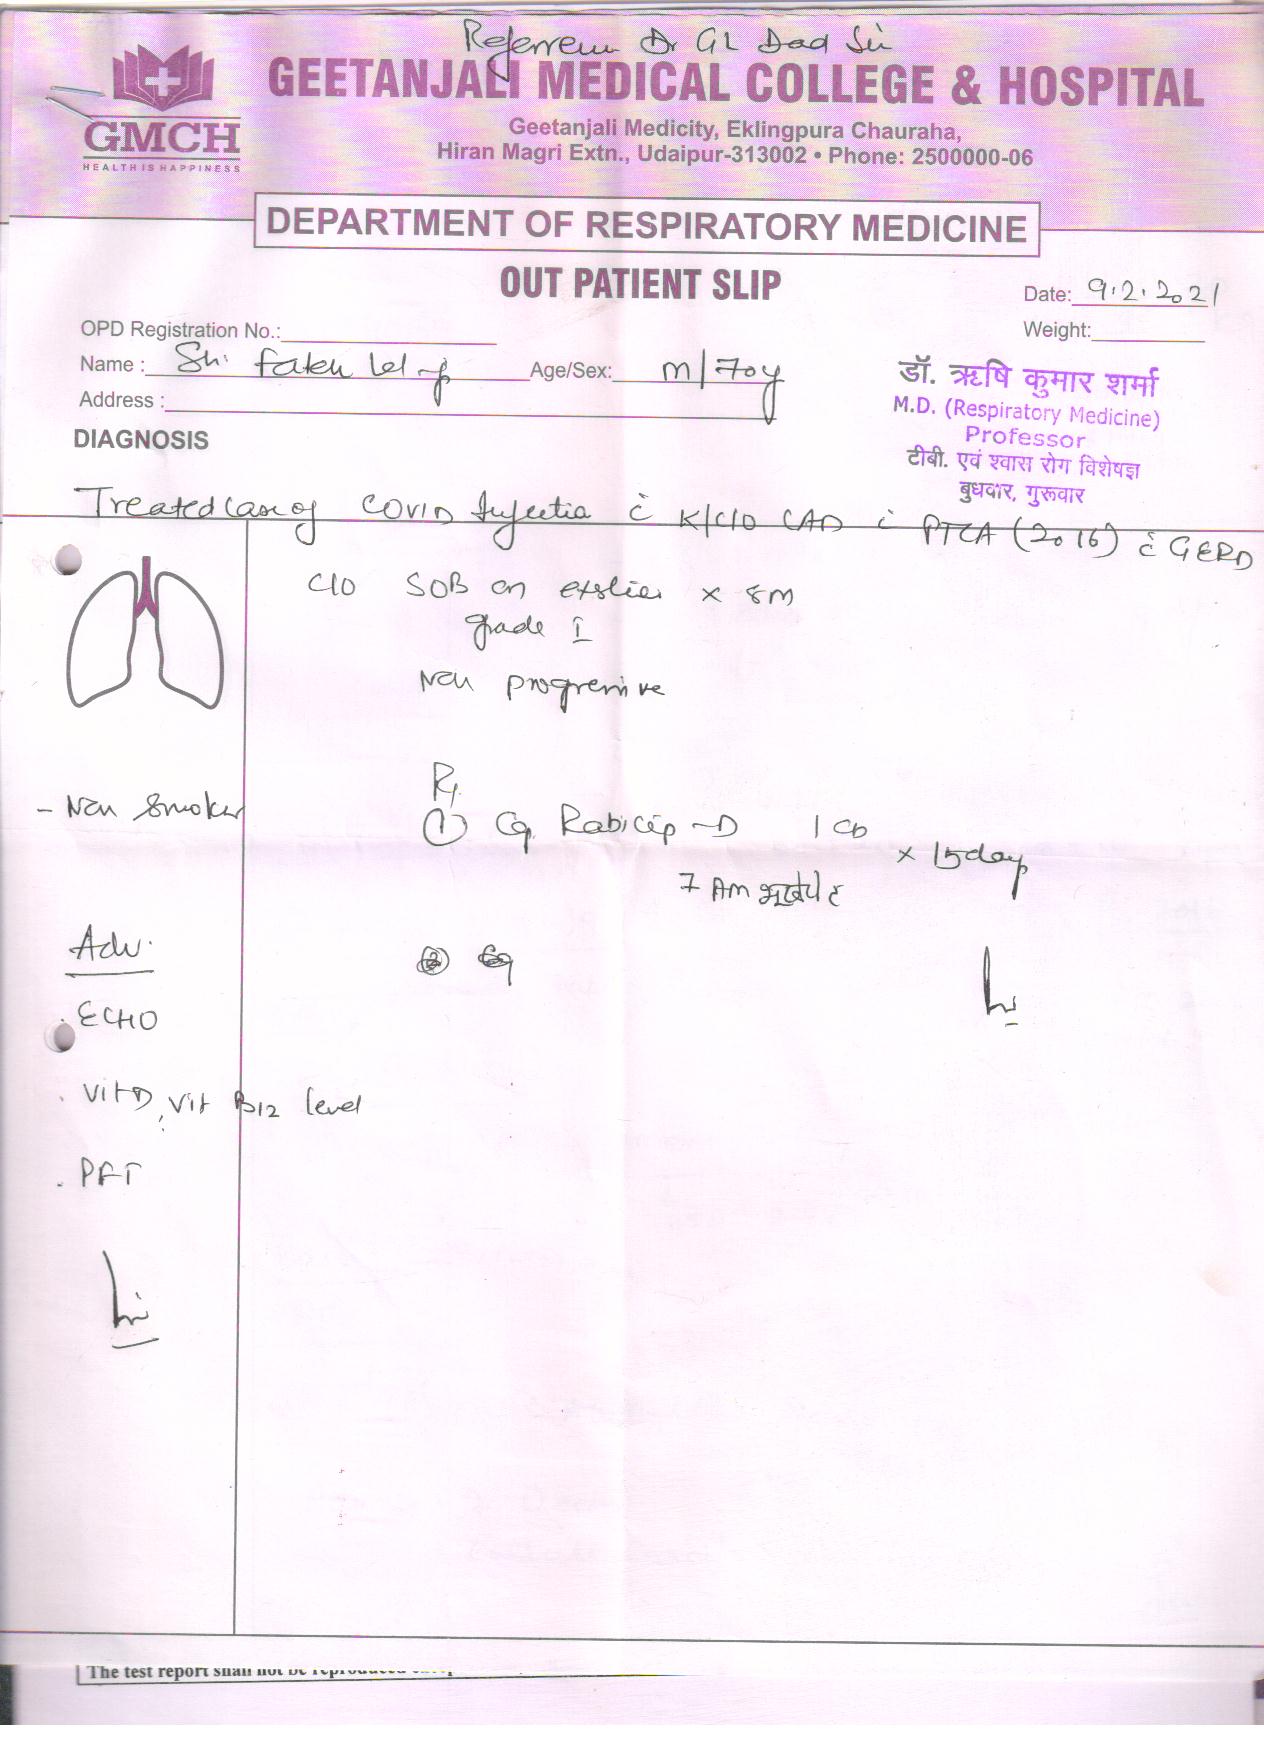 Referrem Dr GL Dad Sir
GMCH
HEALTH IS HAPPINESS
GEETANJALI MEDICAL COLLEGE & HOSPITAL
Geetanjali Medicity, Eklingpura Chauraha,
Hiran Magri Extn., Udaipur-313002 • Phone: 2500000-06
DEPARTMENT OF RESPIRATORY MEDICINE
OUT PATIENT SLIP
Date: 9.2.2021
OPD Registration No.:
Weight:
Name : Sh. Age/Sex: M/70y
Address :
डॉ. ऋषि कुमार शर्मा
M.D. (Respiratory Medicine)
Professor
टीबी. एवं श्वास रोग विशेषज्ञ
बुधवार, गुरूवार
DIAGNOSIS
Treated case of COVID Infection c̄ K/C/O CAD c̄ PTCA (2016) c̄ GERD
C/O SOB on x 8M
grade I
Non progressive
- Non Smoker
Rx
① Cap. Rabicip-D 1 CD
x 15 day
7 AM भूखे पेट
Adv.
②
. ECHO
. Vit D, Vit B12 level
. PFT
The test report shall not be reproduced